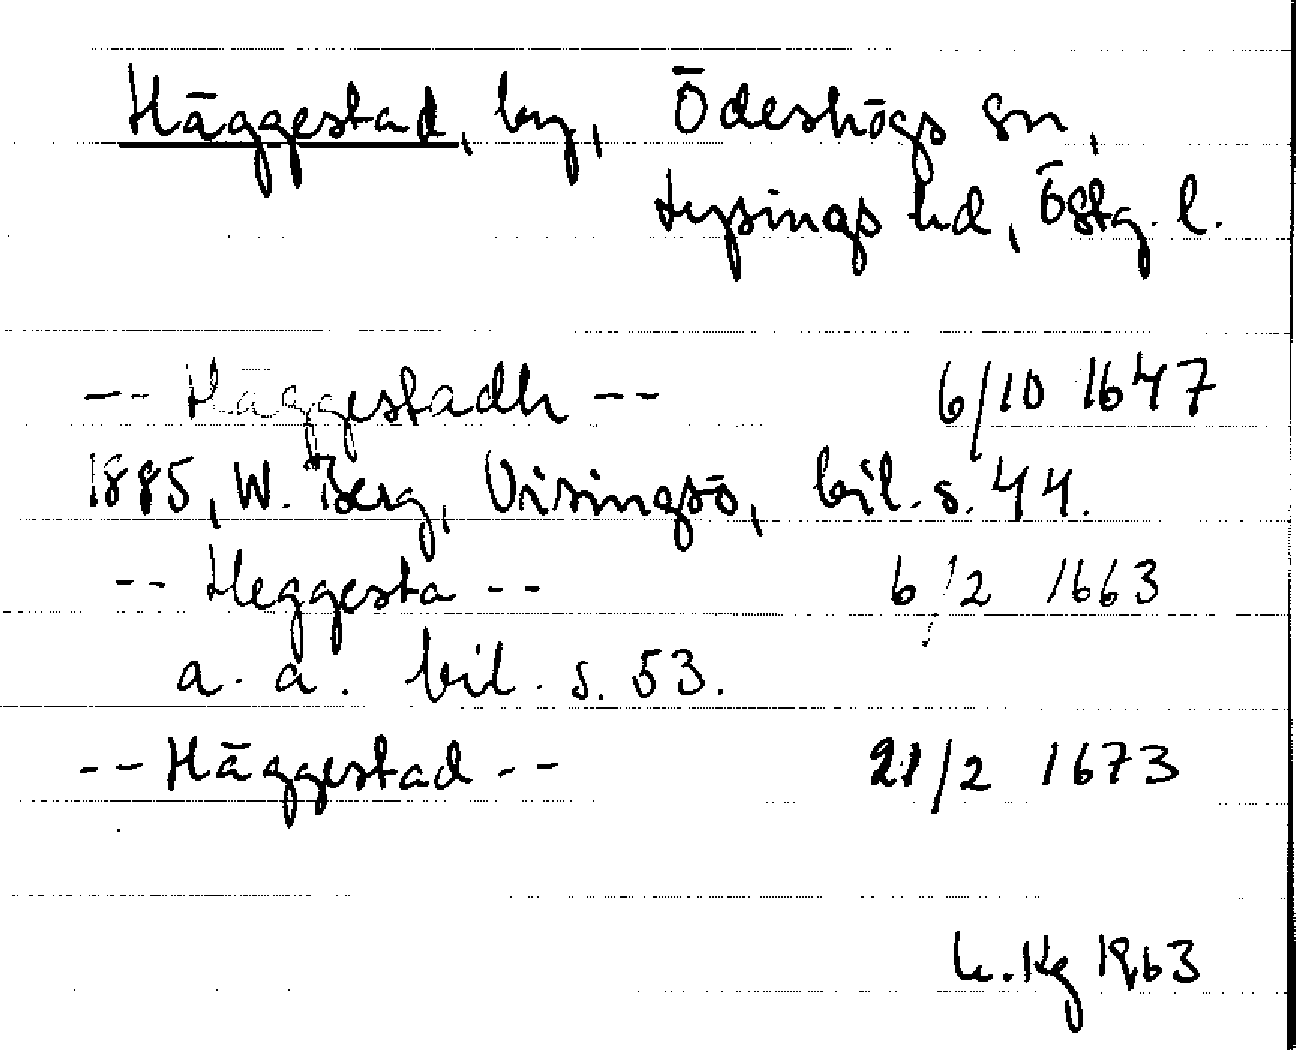 Häggestad, by, Ödeshögs sn,
Lysings hd, Östg. l.
-- Häggestadh -- 6/10 1647
1885, W. Berg, Visingsö, bil. s. 44.
-- Heggesta -- 6/2 1663
a. a. bil. s. 53.
-- Häggestad -- 21/2 1673
Kg 1963